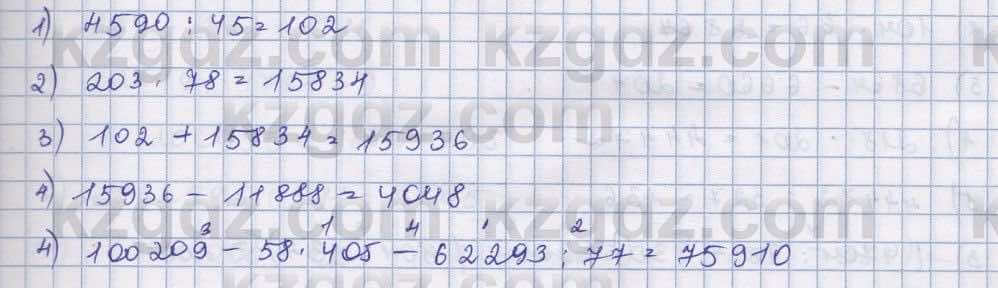 1) 4590 : 45 = 102
2) 203 · 78 = 15834
3) 102 + 15834 = 15936
4) 15936 - 11888 = 4048
3 1 4 ' 2
4) 100209 - 58 · 405 - 62293 : 77 = 75910
kzgdz.com